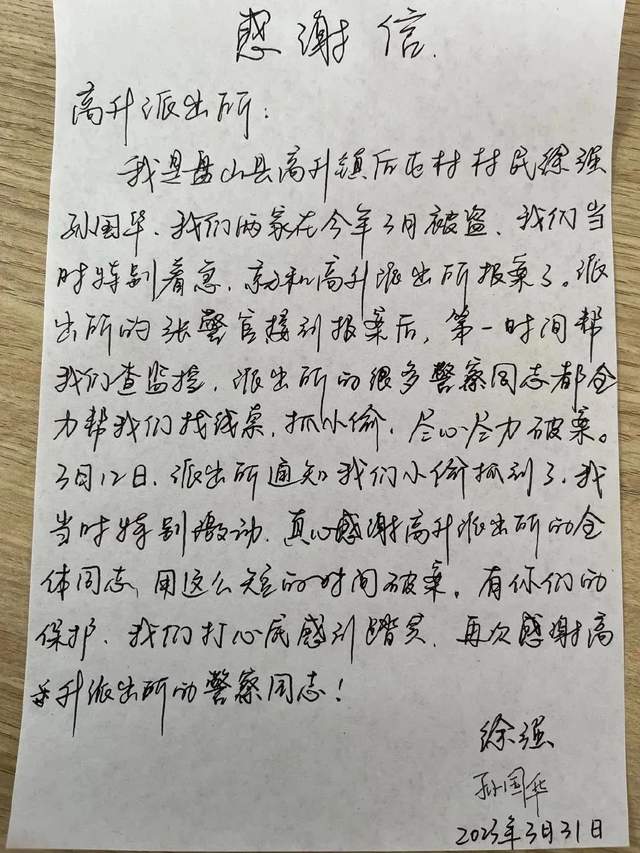 感谢信.
高升派出所：
我是盘山县高升镇后屯村村民徐强
孙国华、我们两家在今年3月被盗、我们当
时特别着急，就和高升派出所报案了。派
出所的张警官接到报案后，第一时间帮
我们查监控，派出所的很多警察同志都全
力帮我们找线索，抓小偷，尽心尽力破案。
3月12日、派出所通知我们小偷抓到了、我
当时特别激动、真心感谢高升派出所的全
体同志、用这么短的时间破案。有你们的
保护、我们打心底感到踏实、再次感谢高
升派出所的警察同志！
徐强
孙国华
2023年3月31日